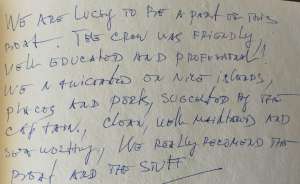 WE ARE LUCKY TO BE A PART OF THIS
BOAT. THE CREW WAS FRIENDLY,
WELL EDUCATED AND PROFESIONAL!
WE NAVIGATED ON NICE ISLANDS,
PLACES AND PORTS, SUGESTED BY THE
CAPTAIN. CLEAN, WELL MAINTAINED AND
SEAWORTHY, WE REALLY RECOMEND THE
BOAT AND THE STUFF